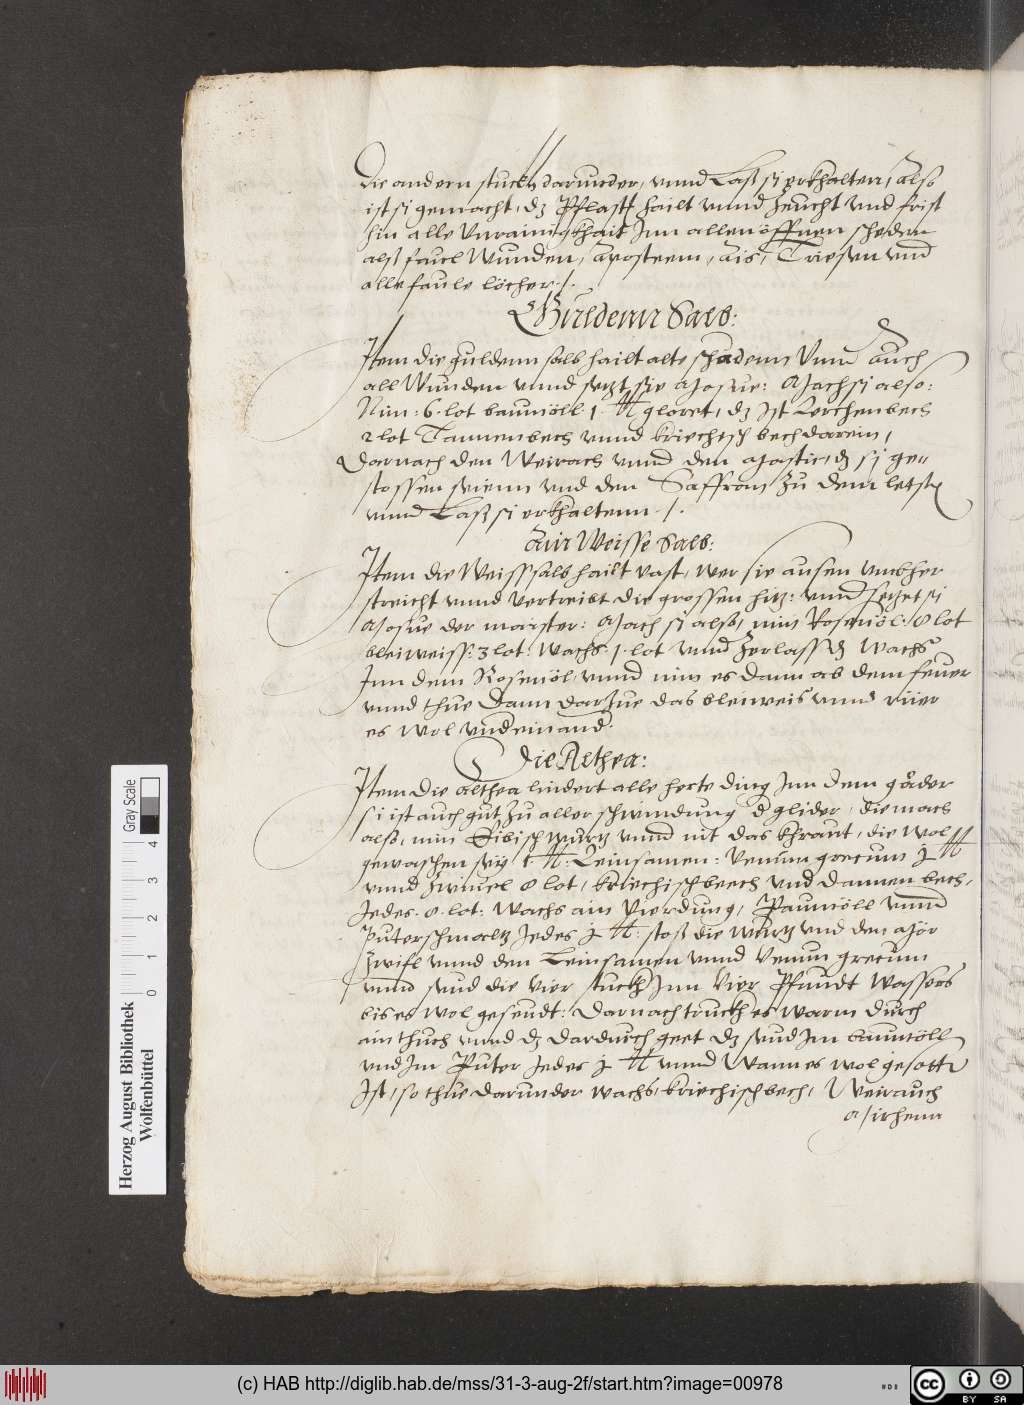 die andern stuckh darunder, vnnd Laß si erkhalten, also
ist si gemacht, dz Pflaster hailt vnnd zeucht vnd frist
hin alle Vnrainigkhait Inn allen öffnen scheden
alß faul Wunden, aposteem, ais, Triesen vnd
alle faule löcher ·/·
Guldenne Salb:
Item die guldenn salb hailt alte schadenn Vnnd auch
all Wunden vnnd setzt sie Mosue: Mach si also:
Nim: 6 · lot baumöll · 1 · ℔ gloret, dz ist Lerchenbech
2 lot Tannenbech vnnd kriechisch bech darein,
Darnach den Weirach vnnd den Mastic, dz si ge=
stossen seienn vnd den Saffran zu dem letst
vnnd Laß si erkhaltenn ·/·
Ain Weisse Salb:
Item die Weisssalb hailt vast, wer sie aussen vmbher
streicht vnnd vertreibt die grossen hitz: vnnd setzet si
Mosue der maister: Mach si alß, nim Rosenöl · 8 lot
bleiweiss: 3 lot: Wachs · 1 · lot vnnd zerlass dz Wachs
Inn dem Rosenöl, vnnd nim es dann ab dem feuer
vnnd thue Dann darzue das bleiweis vnnd rüer
es wol vndeinand.
Die Althea:
Item die althea lindert alle herte ding Inn dem gäder
si ist auch gut zu aller schwindung d glider, die mach
alß, nim Eibisch wurtz vnnd nit das khraut, die wol
gewaschen sey 1 · ℔: Leinsamen: Venum grecum j ℔
vnnd zwiuel 8 lot, kriechisch beech vnd dannen bech,
Jedes · 8 · lot: Wachs ain Vierdung, Paumöll vnnd
Puterschmaltz Jedes j ℔: stoß die wurtz vnd den Mör
zwifl vnnd den Leinsamen vnnd Venum grecum
vnnd seud die vier stuckh Inn Vier Pfundt Wassers
bis es wol geseudt: Darnach truckh es warm durch
ain thuch vnnd dz dardurch geet dz seud Im baumöll
vnd Im Puter Jedes j ℔ vnnd Wann es wol gesotten
Ist, so thue darunder wachs, kriechisch bech, Weirauch
Mirhenn
Gray Scale
0 1 2 3 4
Herzog August Bibliothek
Wolfenbüttel
(c) HAB http://diglib.hab.de/mss/31-3-aug-2f/start.htm?image=00978
cc BY SA